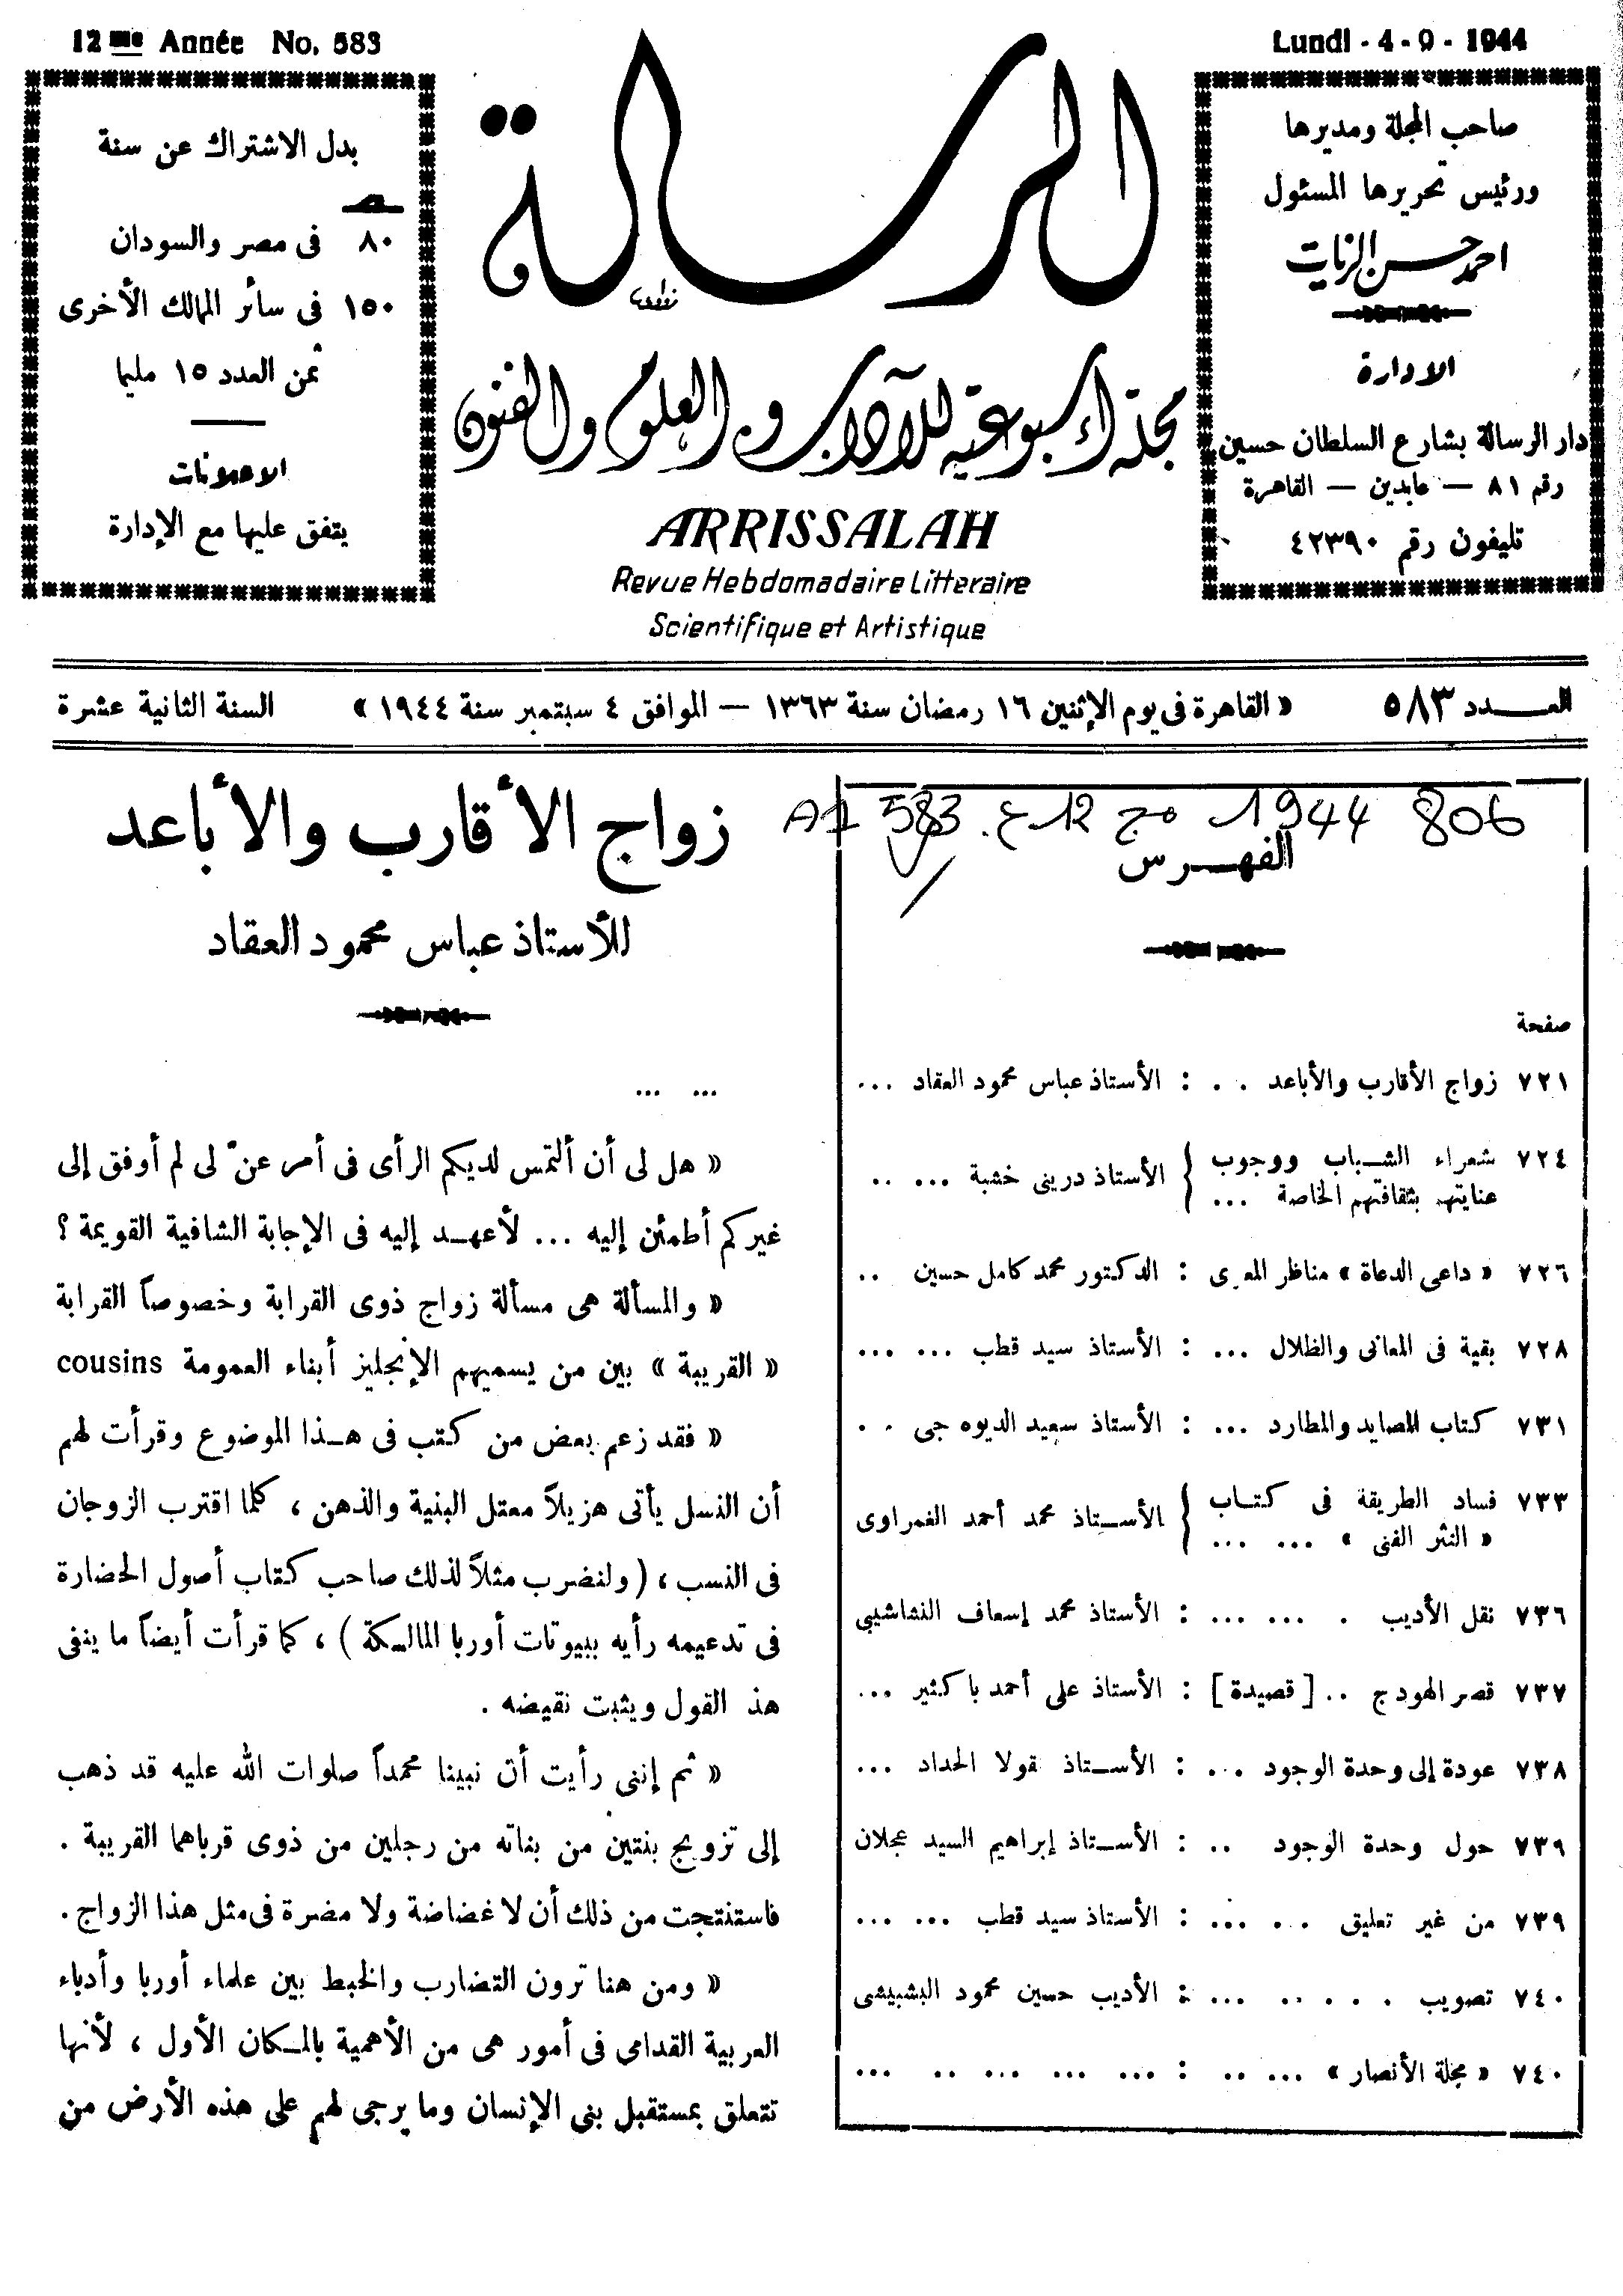 12 me Année No. 583
Lundi - 4 - 9 - 1944
صاحب المجلة ومديرها
ورئيس تحريرها المسئول
احمد حسن الزيات
الادارة
دار الرسالة بشارع السلطان حسين
رقم ٨١ — عابدين — القاهرة
تليفون رقم ٤٢٣٩٠
الرسالة
مجلة أسبوعية للآداب والعلوم والفنون
ARRISSALAH
Revue Hebdomadaire Litteraire
Scientifique et Artistique
بدل الاشتراك عن سنة
٨٠ فى مصر والسودان
١٥٠ فى سائر الممالك الأخرى
ثمن العدد ١٥ مليما
الاعلانات
يتفق عليها مع الإدارة
العـــدد ٥٨٣
« القاهرة فى يوم الإثنين ١٦ رمضان سنة ١٣٦٣ — الموافق ٤ سبتمبر سنة ١٩٤٤ »
السنة الثانية عشرة
806 1944 مج 12 ع. 583 A1
الفهـــرس
صفحة
٧٢١ زواج الأقارب والأباعد . . : الأستاذ عباس محمود العقاد ...
٧٢٤ شعراء الشـباب ووجوب
عنايتهم بثقافتهم الخاصة ... } الأستاذ درينى خشبة ... ..
٧٢٦ « داعى الدعاة » مناظر المعرى : الدكتور محمد كامل حسين ..
٧٢٨ بقية فى المعانى والظلال ... : الأستاذ سيد قطب ... ...
٧٣١ كتاب المصايد والمطارد ... : الأستاذ سعيد الديوه جى . .
٧٣٣ فساد الطريقة فى كتـاب
« النثر الفنى » ... ... } الأســتاذ محمد أحمد الغمراوى
٧٣٦ نقل الأديب . ... ... : الأستاذ محمد إسعاف النشاشيبى
٧٣٧ قصر الهودج .. [ قصيدة ] : الأستاذ على أحمد باكثير ...
٧٣٨ عودة إلى وحدة الوجود ... : الأســتاذ نقولا الحداد ...
٧٣٩ حول وحدة الوجود .. : الأســتاذ إبراهيم السيد عجلان
٧٣٩ من غير تعليق . .. ... : الأستاذ سيد قطب ... ...
٧٤٠ تصويب . . . .. ... : الأديب حسين محمود البشبيشى
٧٤٠ « مجلة الأنصار » ... .. : ... ... ... .. ...
زواج الأقارب والأباعد
للأستاذ عباس محمود العقاد
... ...
« هل لى أن ألتمس لديكم الرأى فى أمر عنّ لى لم أوفق إلى
غيركم أطمئن إليه ... لأعهـد إليه فى الإجابة الشافية القويمة ؟
« والمسألة هى مسألة زواج ذوى القرابة وخصوصاً القرابة
« القريبة » بين من يسميهم الإنجليز أبناء العمومة cousins
« فقد زعم بعض من كتب فى هـذا الموضوع وقرأت لهم
أن النسل يأتى هزيلاً معتل البنية والذهن ، كلما اقترب الزوجان
فى النسب ، ( ولنضرب مثلاً لذلك صاحب كتاب أصول الحضارة
فى تدعيمه رأيه ببيوتات أوربا المالـكة ) ، كما قرأت أيضاً ما ينفى
هذ القول ويثبت نقيضه .
« ثم إننى رأيت أن نبينا محمداً صلوات الله عليه قد ذهب
إلى تزويج بنتين من بناته من رجلين من ذوى قرباهما القريبة .
فاستنتجت من ذلك أن لا غضاضة ولا مضرة فى مثل هذا الزواج .
« ومن هنا ترون التضارب والخبط بين علماء أوربا وأدباء
العربية القدامى فى أمور هى من الأهمية بالمـكان الأول ، لأنها
تتعلق بمستقبل بنى الإنسان وما يرجى لهم على هذه الأرض من